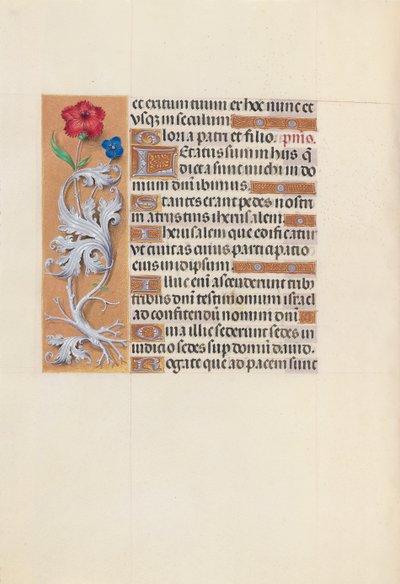 et exitum tuum ex hoc nunc et
vsq3 in seculum
Gloria patri et filio. pmo.
Letatus sum in hijs q̄
dicta sunt michi in do
mum dm̄i ibimus.
Stantes erant pedes nostri
in atrijs tuis iherusalem.
Iherusalem que edificatur
vt ciuitas cuius participatio
eius in idipsum.
Illuc em̄ ascenderunt trib9
tribus dm̄i testimonium israel
ad confitendū nomini dm̄i
Quia illic sederunt sedes in
iudicio sedes sup domū dauid.
Rogate que ad pacem sunt